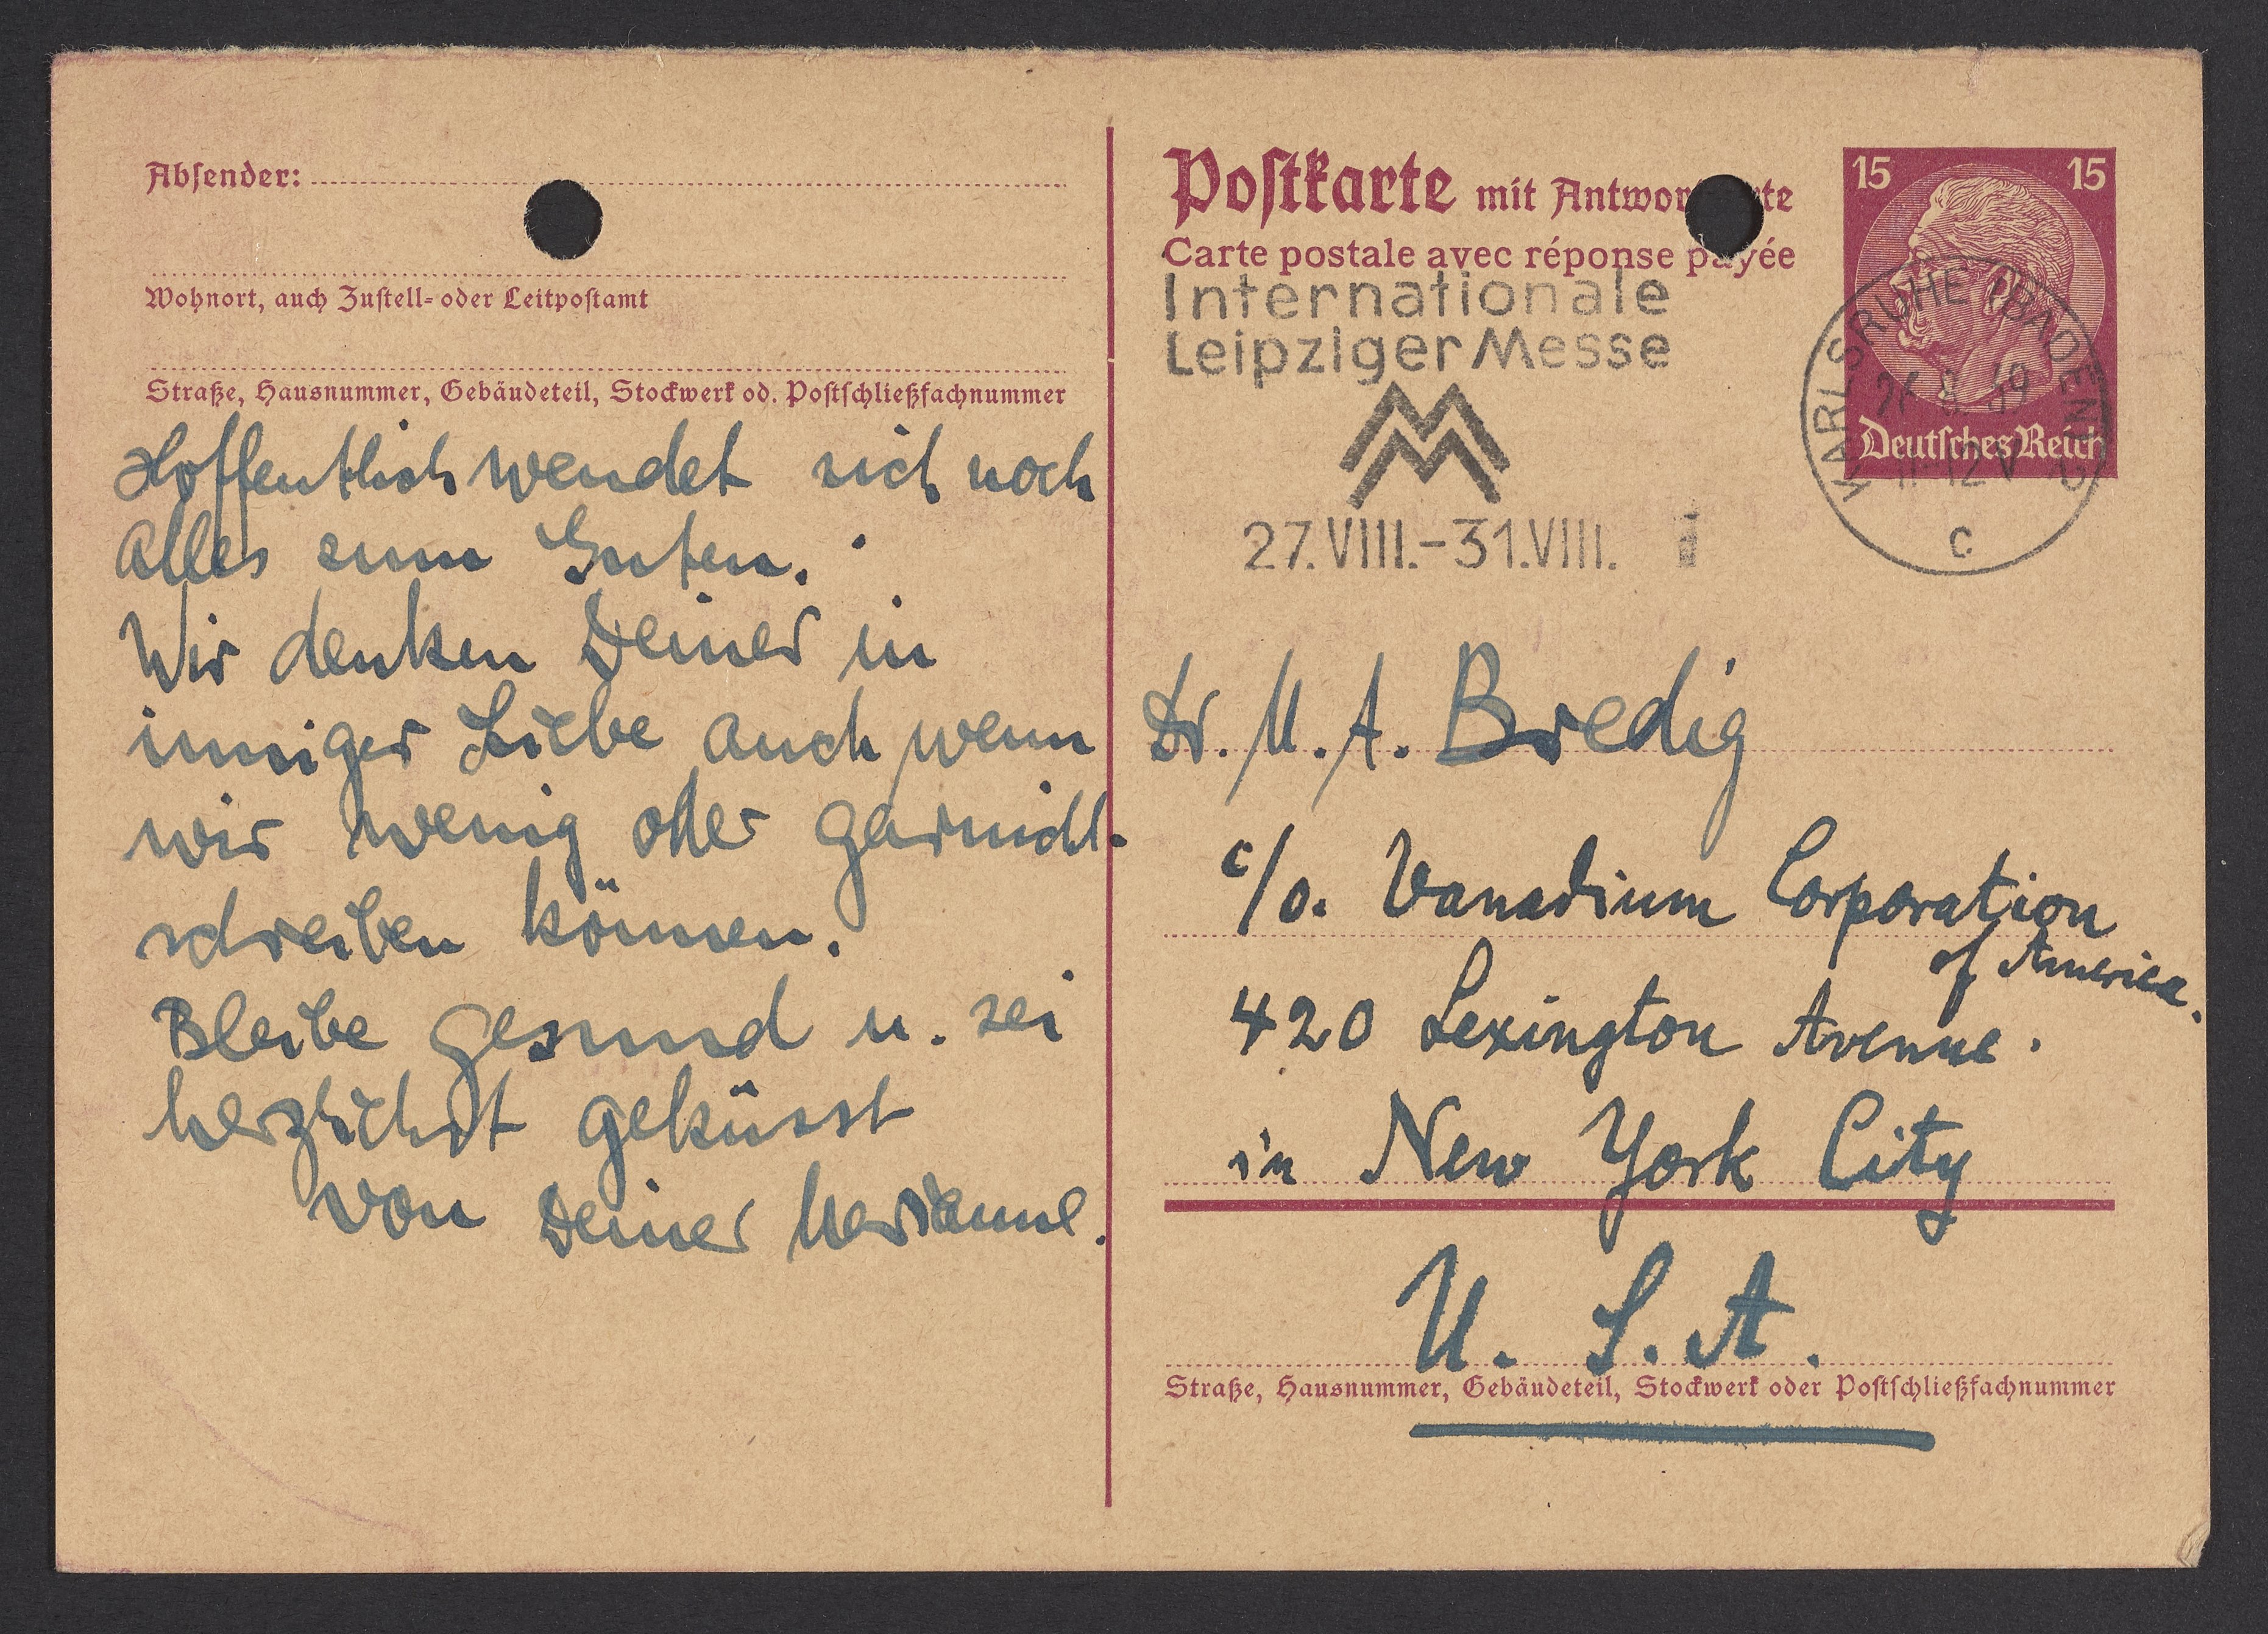 Absender:
Wohnort, auch Zustell- oder Leitpostamt
Straße, Hausnummer, Gebäudeteil, Stockwerk od. Postschließfachnummer
Hoffentlich wendet sich noch
alles zum Guten.
Wir denken Deiner in
inniger Liebe auch wenn
wir wenig oder garnicht
schreiben können.
Bleibe gesund u. sei
herzlichst geküsst
von Deiner Marianne.
Postkarte mit Antwor te
Carte postale avec réponse payée
15 15
Deutsches Reich
Internationale
Leipziger Messe
MM
27.VIII.-31.VIII.
KARLSRUHE (BADEN)
8.39
11-12 V
c
Dr. M. A. Bredig
c/o. Vanadium Corporation
of America.
420 Lexington Avenue.
in New York City
U. S. A.
Straße, Hausnummer, Gebäudeteil, Stockwerk oder Postschließfachnummer